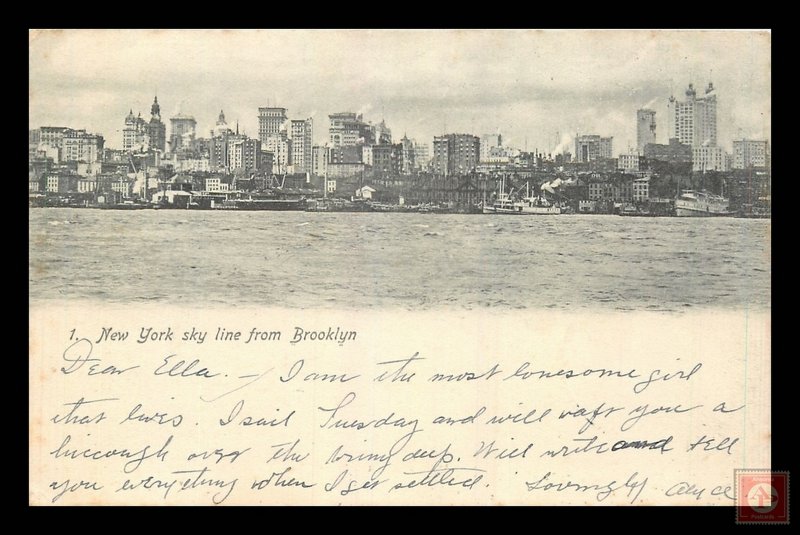 1. New York sky line from Brooklyn
Dear Ella. - I am the most lonesome girl
that lives. I sail Tuesday and will waft you a
hiccough over the briny deep. Will write and tell
you everything when I get settled. Lovingly Alyce
Postcards